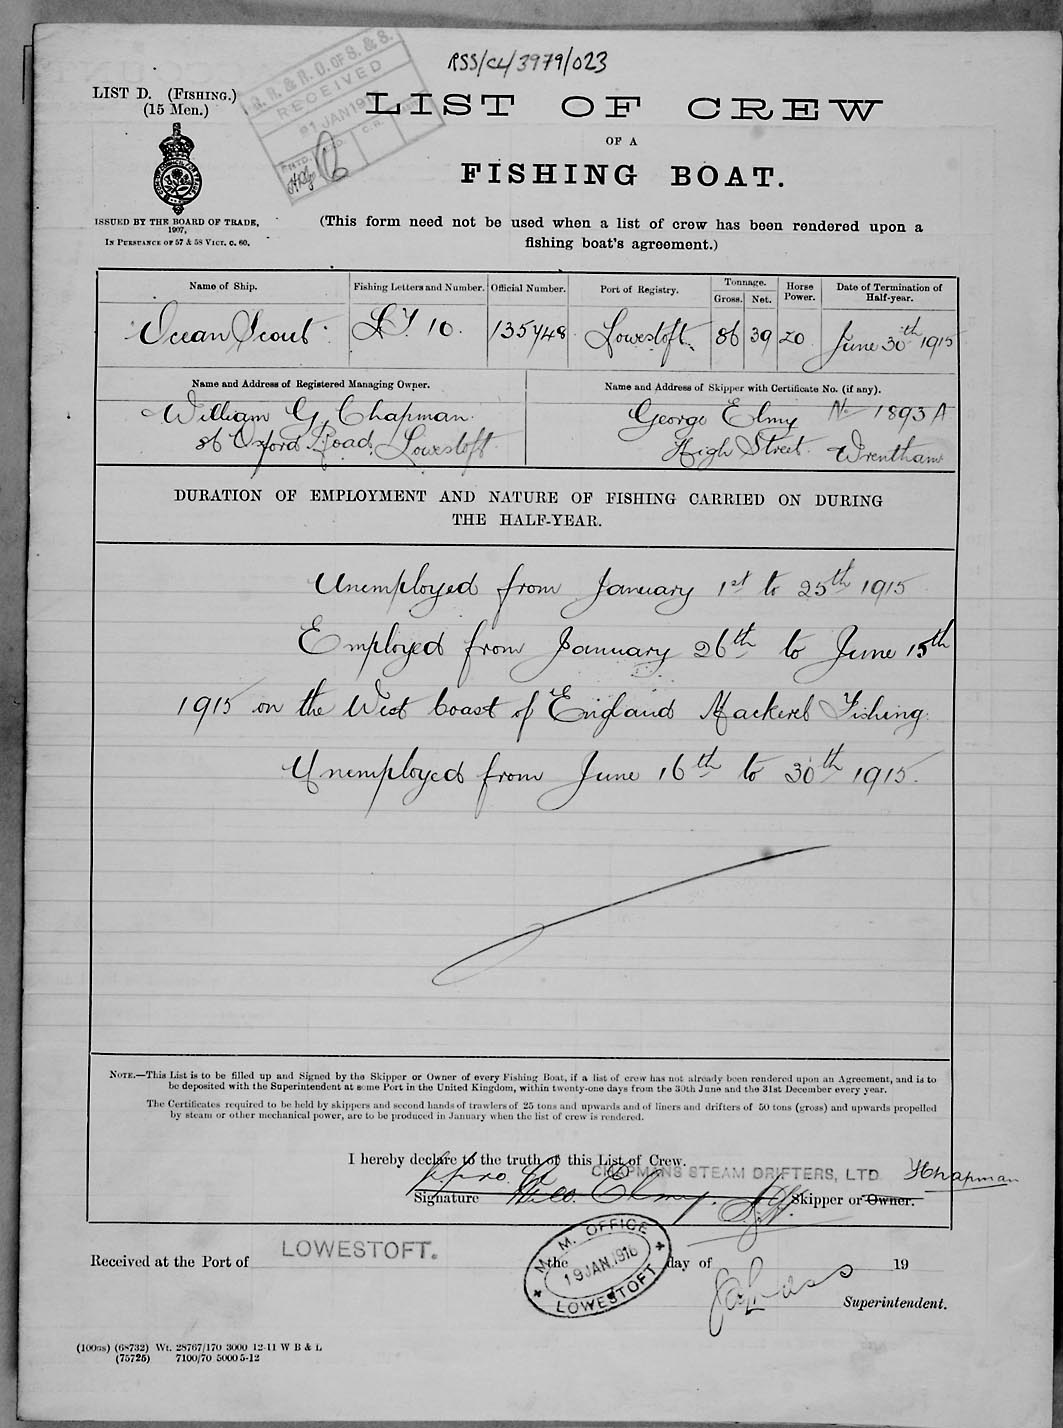 RSS/CL/3979/023
LIST D. (FISHING.)
(15 Men.)
G. R. & R. D. OF S. & S.
RECEIVED
21 JAN 19
LIST OF CREW
OF A
FISHING BOAT.
ISSUED BY THE BOARD OF TRADE,
1907,
IN PURSUANCE OF 57 & 58 VICT. C. 60.
(This form need not be used when a list of crew has been rendered upon a
fishing boat's agreement.)
Name of Ship. Fishing Letters and Number. Official Number. Port of Registry. Tonnage. Horse Power. Date of Termination of Half-year.
Gross. Net.
Ocean Scout LT 10. 135748 Lowestoft 86 39 20 June 30th 1915
Name and Address of Registered Managing Owner. Name and Address of Skipper with Certificate No. (if any).
William G. Chapman. George Elmy No 1893 A
86 Oxford Road, Lowestoft High Street. Wrentham
DURATION OF EMPLOYMENT AND NATURE OF FISHING CARRIED ON DURING
THE HALF-YEAR.
Unemployed from January 1st to 25th 1915
Employed from January 26th to June 15th
1915 on the West Coast of England Mackerel Fishing.
Unemployed from June 16th to 30th 1915.
NOTE.—This List is to be filled up and Signed by the Skipper or Owner of every Fishing Boat, if a list of crew has not already been rendered upon an Agreement, and is to
be deposited with the Superintendent at some Port in the United Kingdom, within twenty-one days from the 30th June and the 31st December every year.
The Certificates required to be held by skippers and second hands of trawlers of 25 tons and upwards and of liners and drifters of 50 tons (gross) and upwards propelled
by steam or other mechanical power, are to be produced in January when the list of crew is rendered.
I hereby declare to the truth of this List of Crew.
CHAPMANS STEAM DRIFTERS, LTD Chapman
Signature Elmy. Skipper or Owner.
Received at the Port of LOWESTOFT. the day of 19
M. M. OFFICE
19 JAN. 1916
LOWESTOFT
Superintendent.
(100gs) (68732) Wt. 28767/170 3000 12-11 W B & L
(75725) 7100/70 5000 5-12